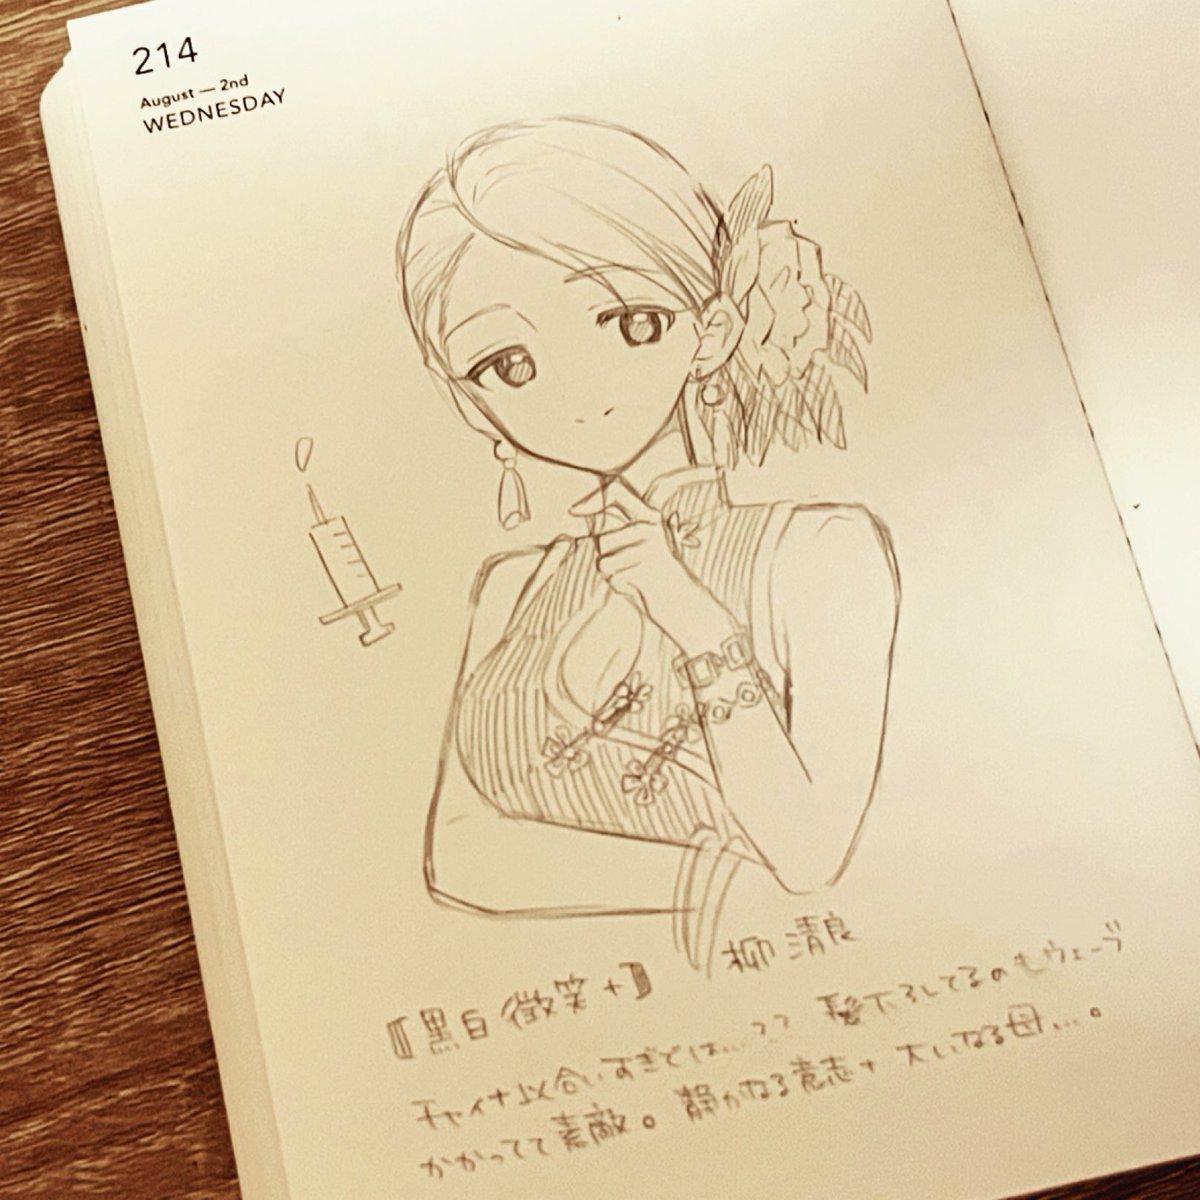 214
August — 2nd
WEDNESDAY
【黒白微笑+】 柳清良
チャイナ似合いすぎでは…?? 髪下ろしてるのもウェーブ
かかってて素敵。静かなる意志+大いなる母…。